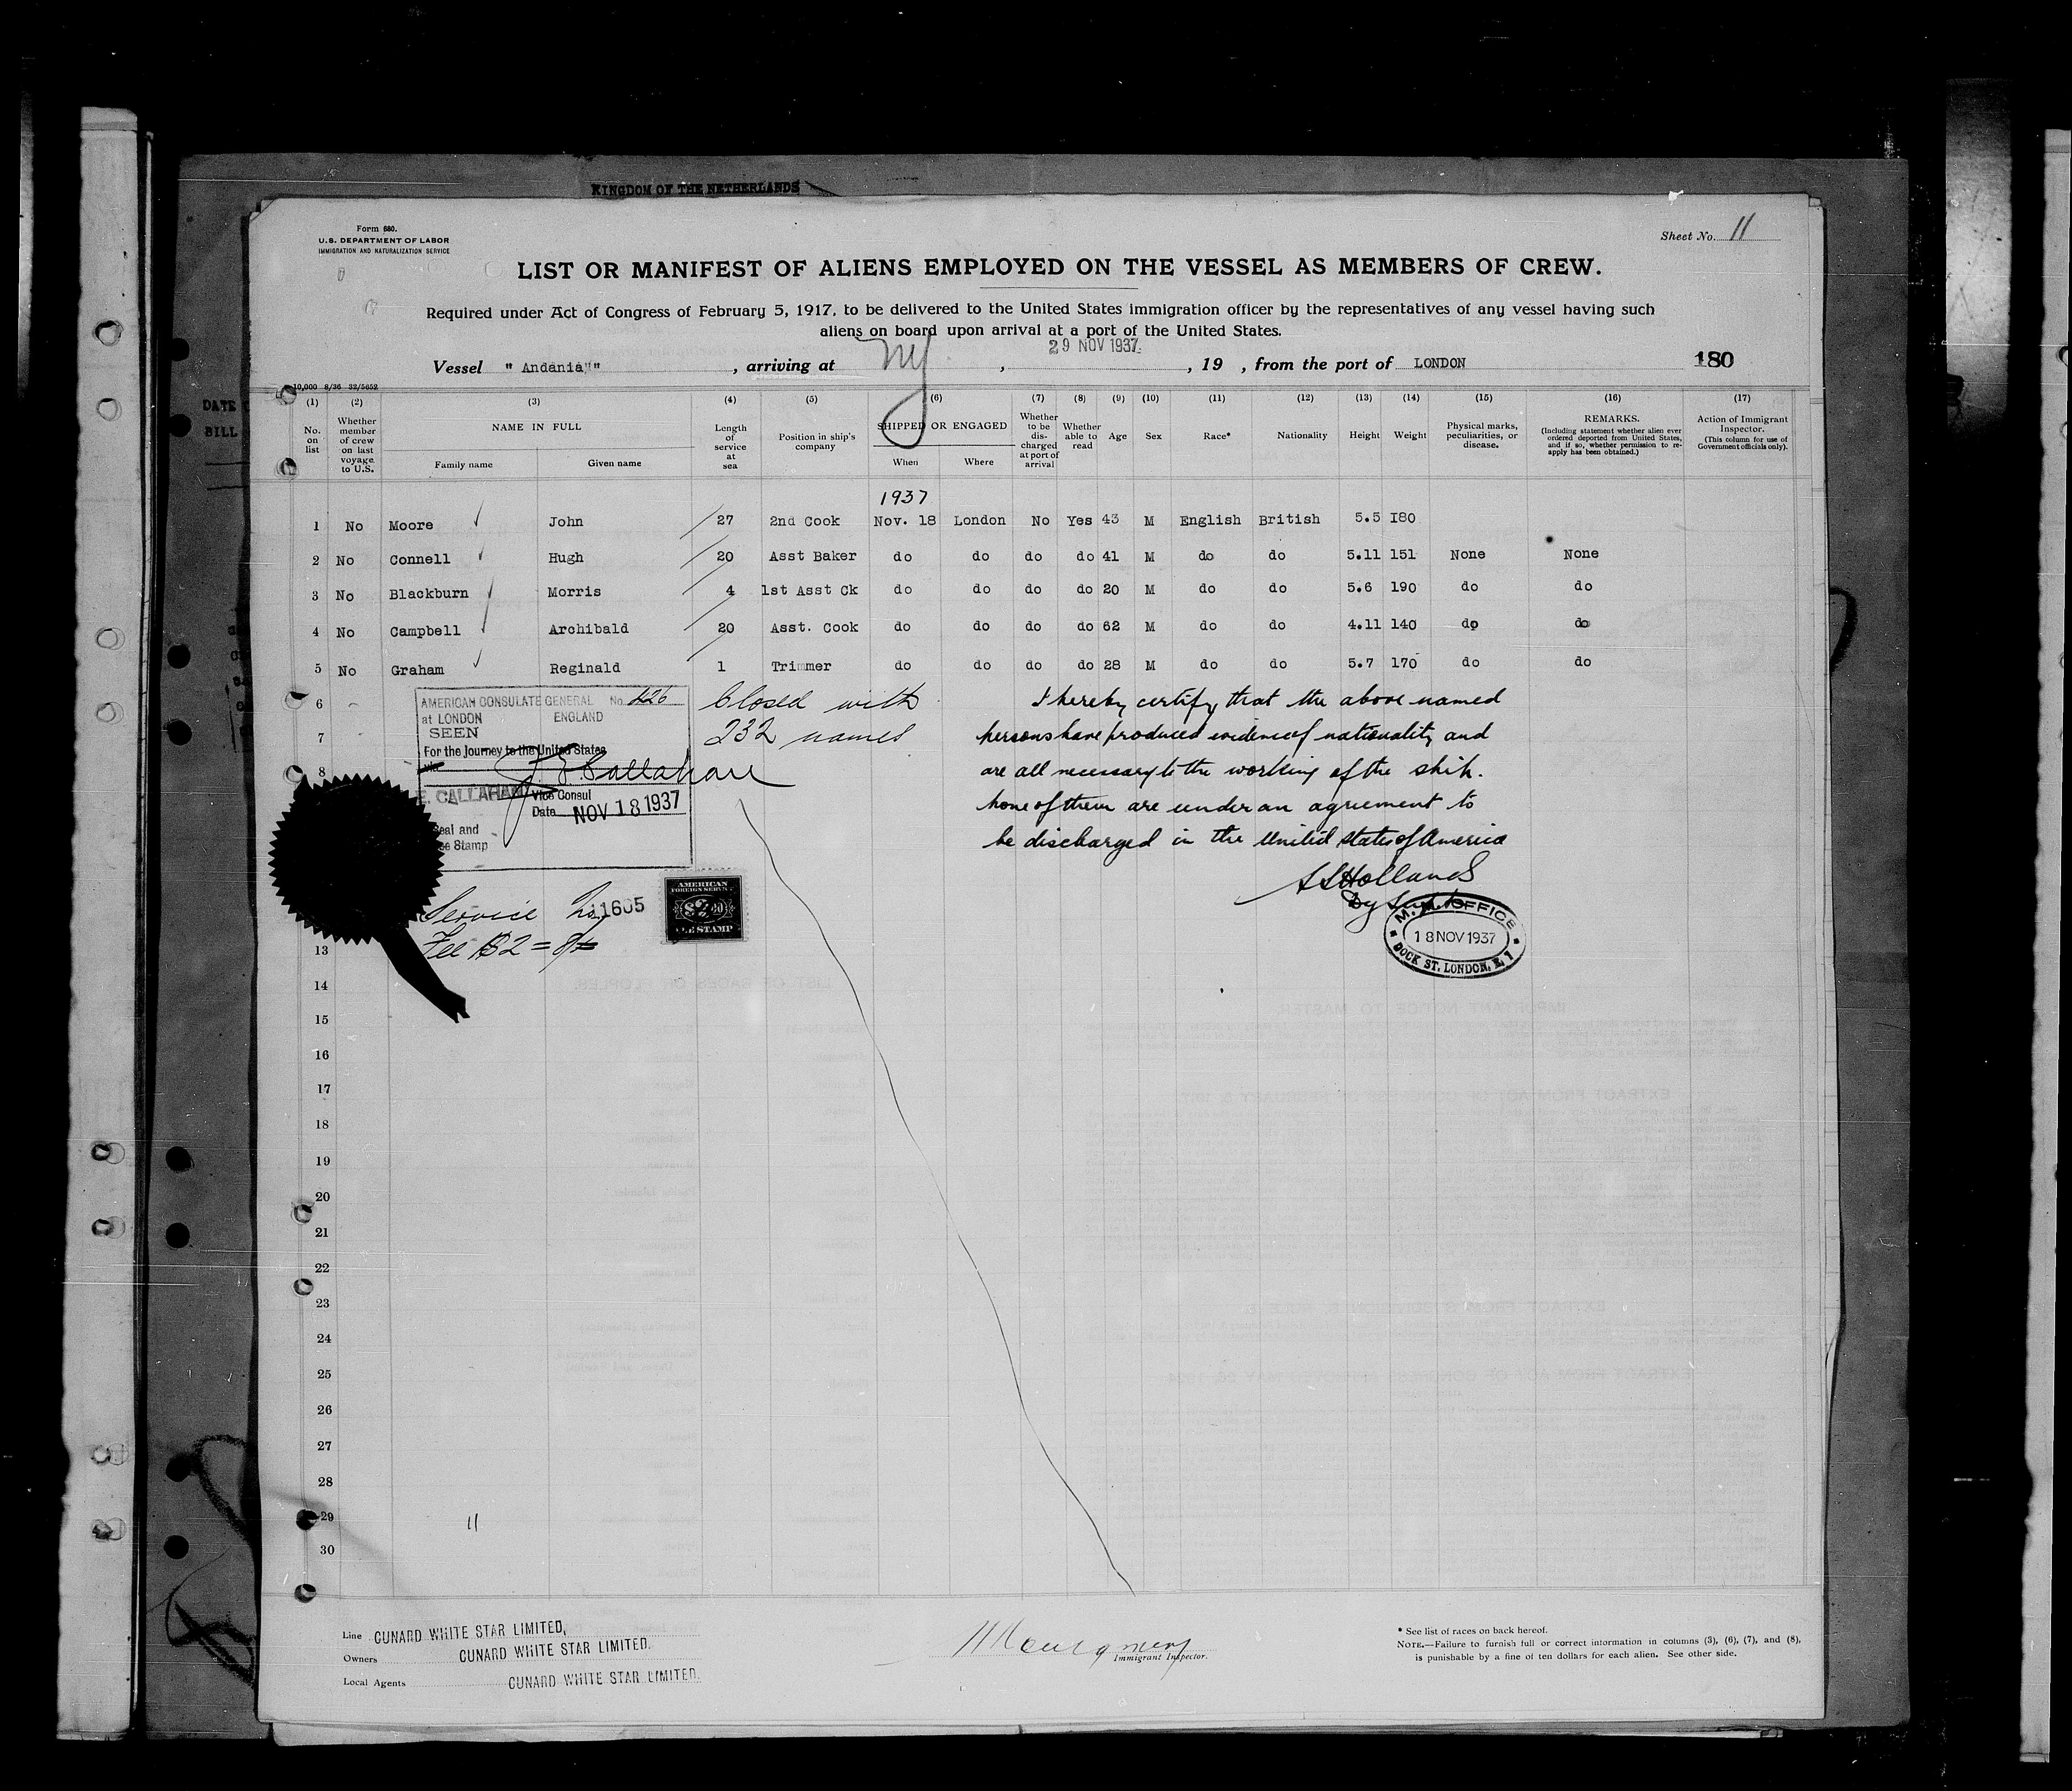 KINGDOM OF THE NETHERLANDS
Form 680.
U.S. DEPARTMENT OF LABOR
IMMIGRATION AND NATURALIZATION SERVICE
Sheet No. 11
LIST OR MANIFEST OF ALIENS EMPLOYED ON THE VESSEL AS MEMBERS OF CREW.
Required under Act of Congress of February 5, 1917, to be delivered to the United States immigration officer by the representatives of any vessel having such
aliens on board upon arrival at a port of the United States.
Vessel " Andania"" , arriving at NY , 29 NOV 1937 , 19 , from the port of LONDON 180
10,000 8/36 32/5652
DATE
BILL
(1) (2) (3) (4) (5) (6) (7) (8) (9) (10) (11) (12) (13) (14) (15) (16) (17)
No. on list
Whether member of crew on last voyage to U.S.
NAME IN FULL
Family name Given name
Length of service at sea
Position in ship's company
SHIPPED OR ENGAGED
When Where
Whether to be discharged at port of arrival
Whether able to read
Age
Sex
Race*
Nationality
Height
Weight
Physical marks, peculiarities, or disease.
REMARKS.
(Including statement whether alien ever ordered deported from United States, and if so, whether permission to reapply has been obtained.)
Action of Immigrant Inspector.
(This column for use of Government officials only).
1937
1 No Moore John 27 2nd Cook Nov. 18 London No Yes 43 M English British 5.5 I80
2 No Connell Hugh 20 Asst Baker do do do do 41 M do do 5.11 151 None None
3 No Blackburn Morris 4 1st Asst Ck do do do do 20 M do do 5.6 190 do do
4 No Campbell Archibald 20 Asst. Cook do do do do 62 M do do 4.11 140 do do
5 No Graham Reginald 1 Trimmer do do do do 28 M do do 5.7 170 do do
6
7
8
AMERICAN CONSULATE GENERAL No. 426
at LONDON ENGLAND
SEEN
For the Journey to the United States
via
J E Callahan
E. CALLAHAN Vice Consul
Date NOV 18 1937
Seal and
Fee Stamp
Closed with
232 names
I hereby certify that the above named
persons have produced evidence of nationality and
are all necessary to the working of the ship.
None of them are under an agreement to
be discharged in the United States of America
Hollands
Dy Supt
M.M. OFFICE
18 NOV 1937
DOCK ST. LONDON, E. 1
Service No. 11605
Fee $2 =
AMERICAN
FOREIGN SERVICE
$2.00
FEE STAMP
13
14
15
16
17
18
19
20
21
22
23
24
25
26
27
28
29
11
30
Line CUNARD WHITE STAR LIMITED,
Owners CUNARD WHITE STAR LIMITED.
Local Agents CUNARD WHITE STAR LIMITED.
Immigrant Inspector.
* See list of races on back hereof.
NOTE.—Failure to furnish full or correct information in columns (3), (6), (7), and (8),
is punishable by a fine of ten dollars for each alien. See other side.